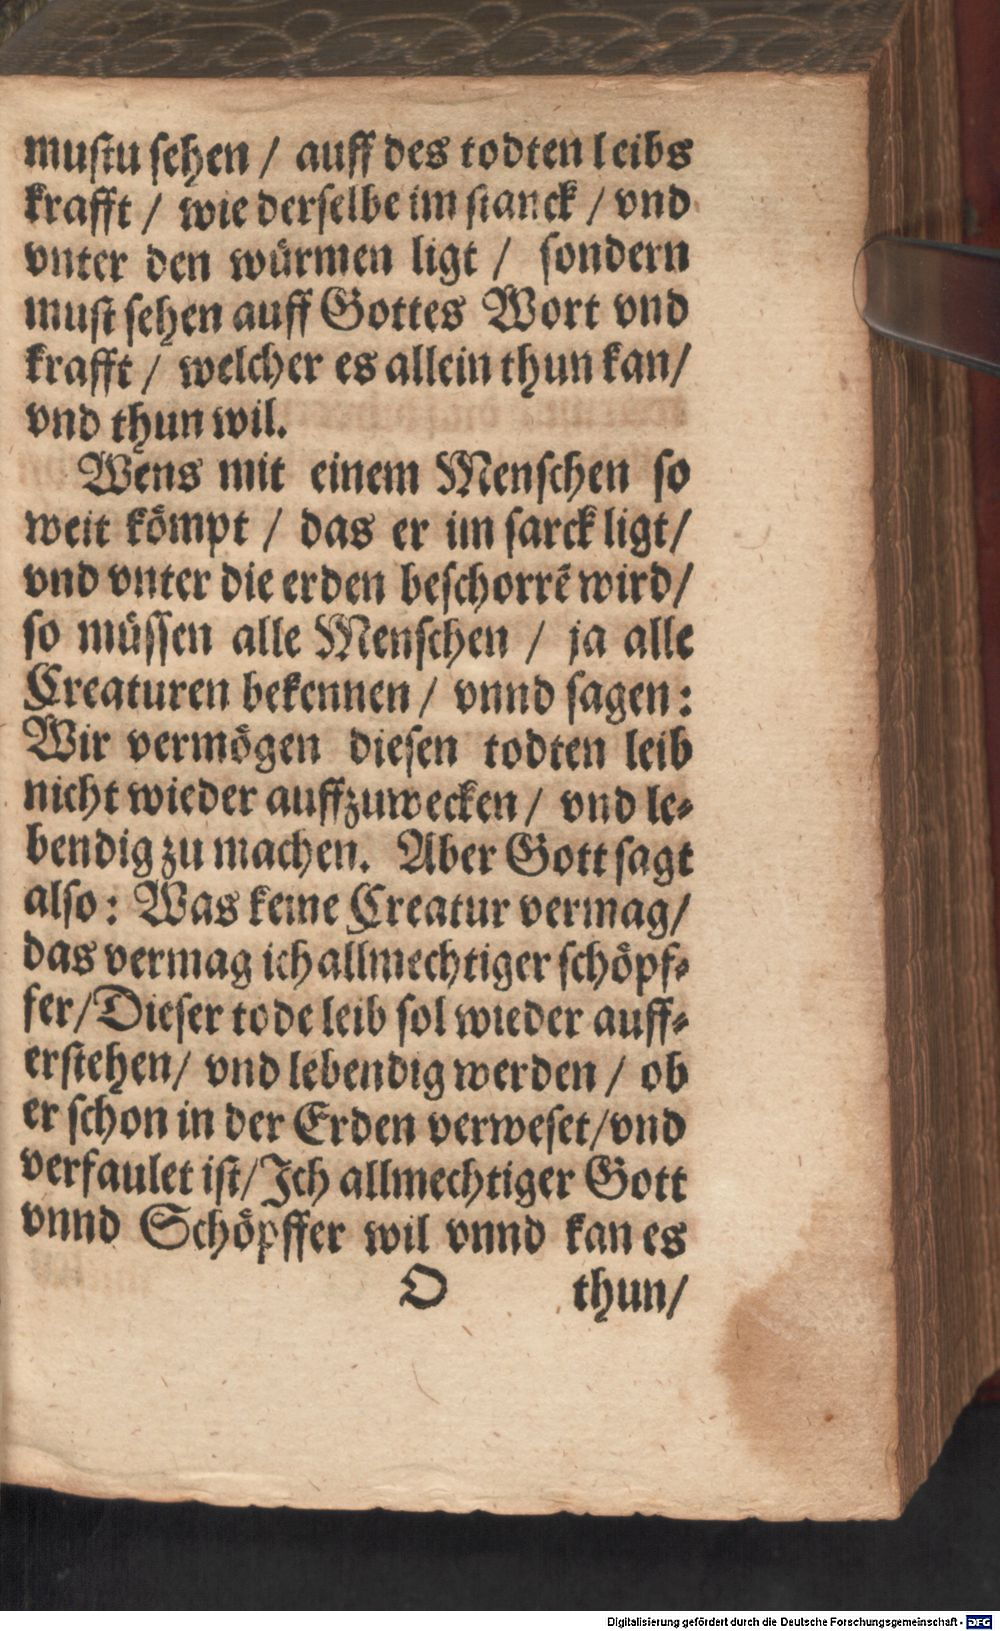 mustu sehen / auff des todten leibs
krafft / wie derselbe im stanck / vnd
vnter den würmen ligt / sondern
must sehen auff Gottes Wort vnd
krafft / welcher es allein thun kan/
vnd thun wil.
Wens mit einem Menschen so
weit kömpt / das er im sarck ligt/
vnd vnter die erden beschorrẽ wird/
so müssen alle Menschen / ja alle
Creaturen bekennen / vnnd sagen:
Wir vermögen diesen todten leib
nicht wieder auffzuwecken / vnd le-
bendig zu machen. Aber Gott sagt
also: Was keine Creatur vermag/
das vermag ich allmechtiger schöpf-
fer/Dieser tode leib sol wieder auff-
erstehen/ vnd lebendig werden / ob
er schon in der Erden verweset/vnd
verfaulet ist/Ich allmechtiger Gott
vnnd Schöpffer wil vnnd kan es
O thun/
Digitalisierung gefördert durch die Deutsche Forschungsgemeinschaft - DFG